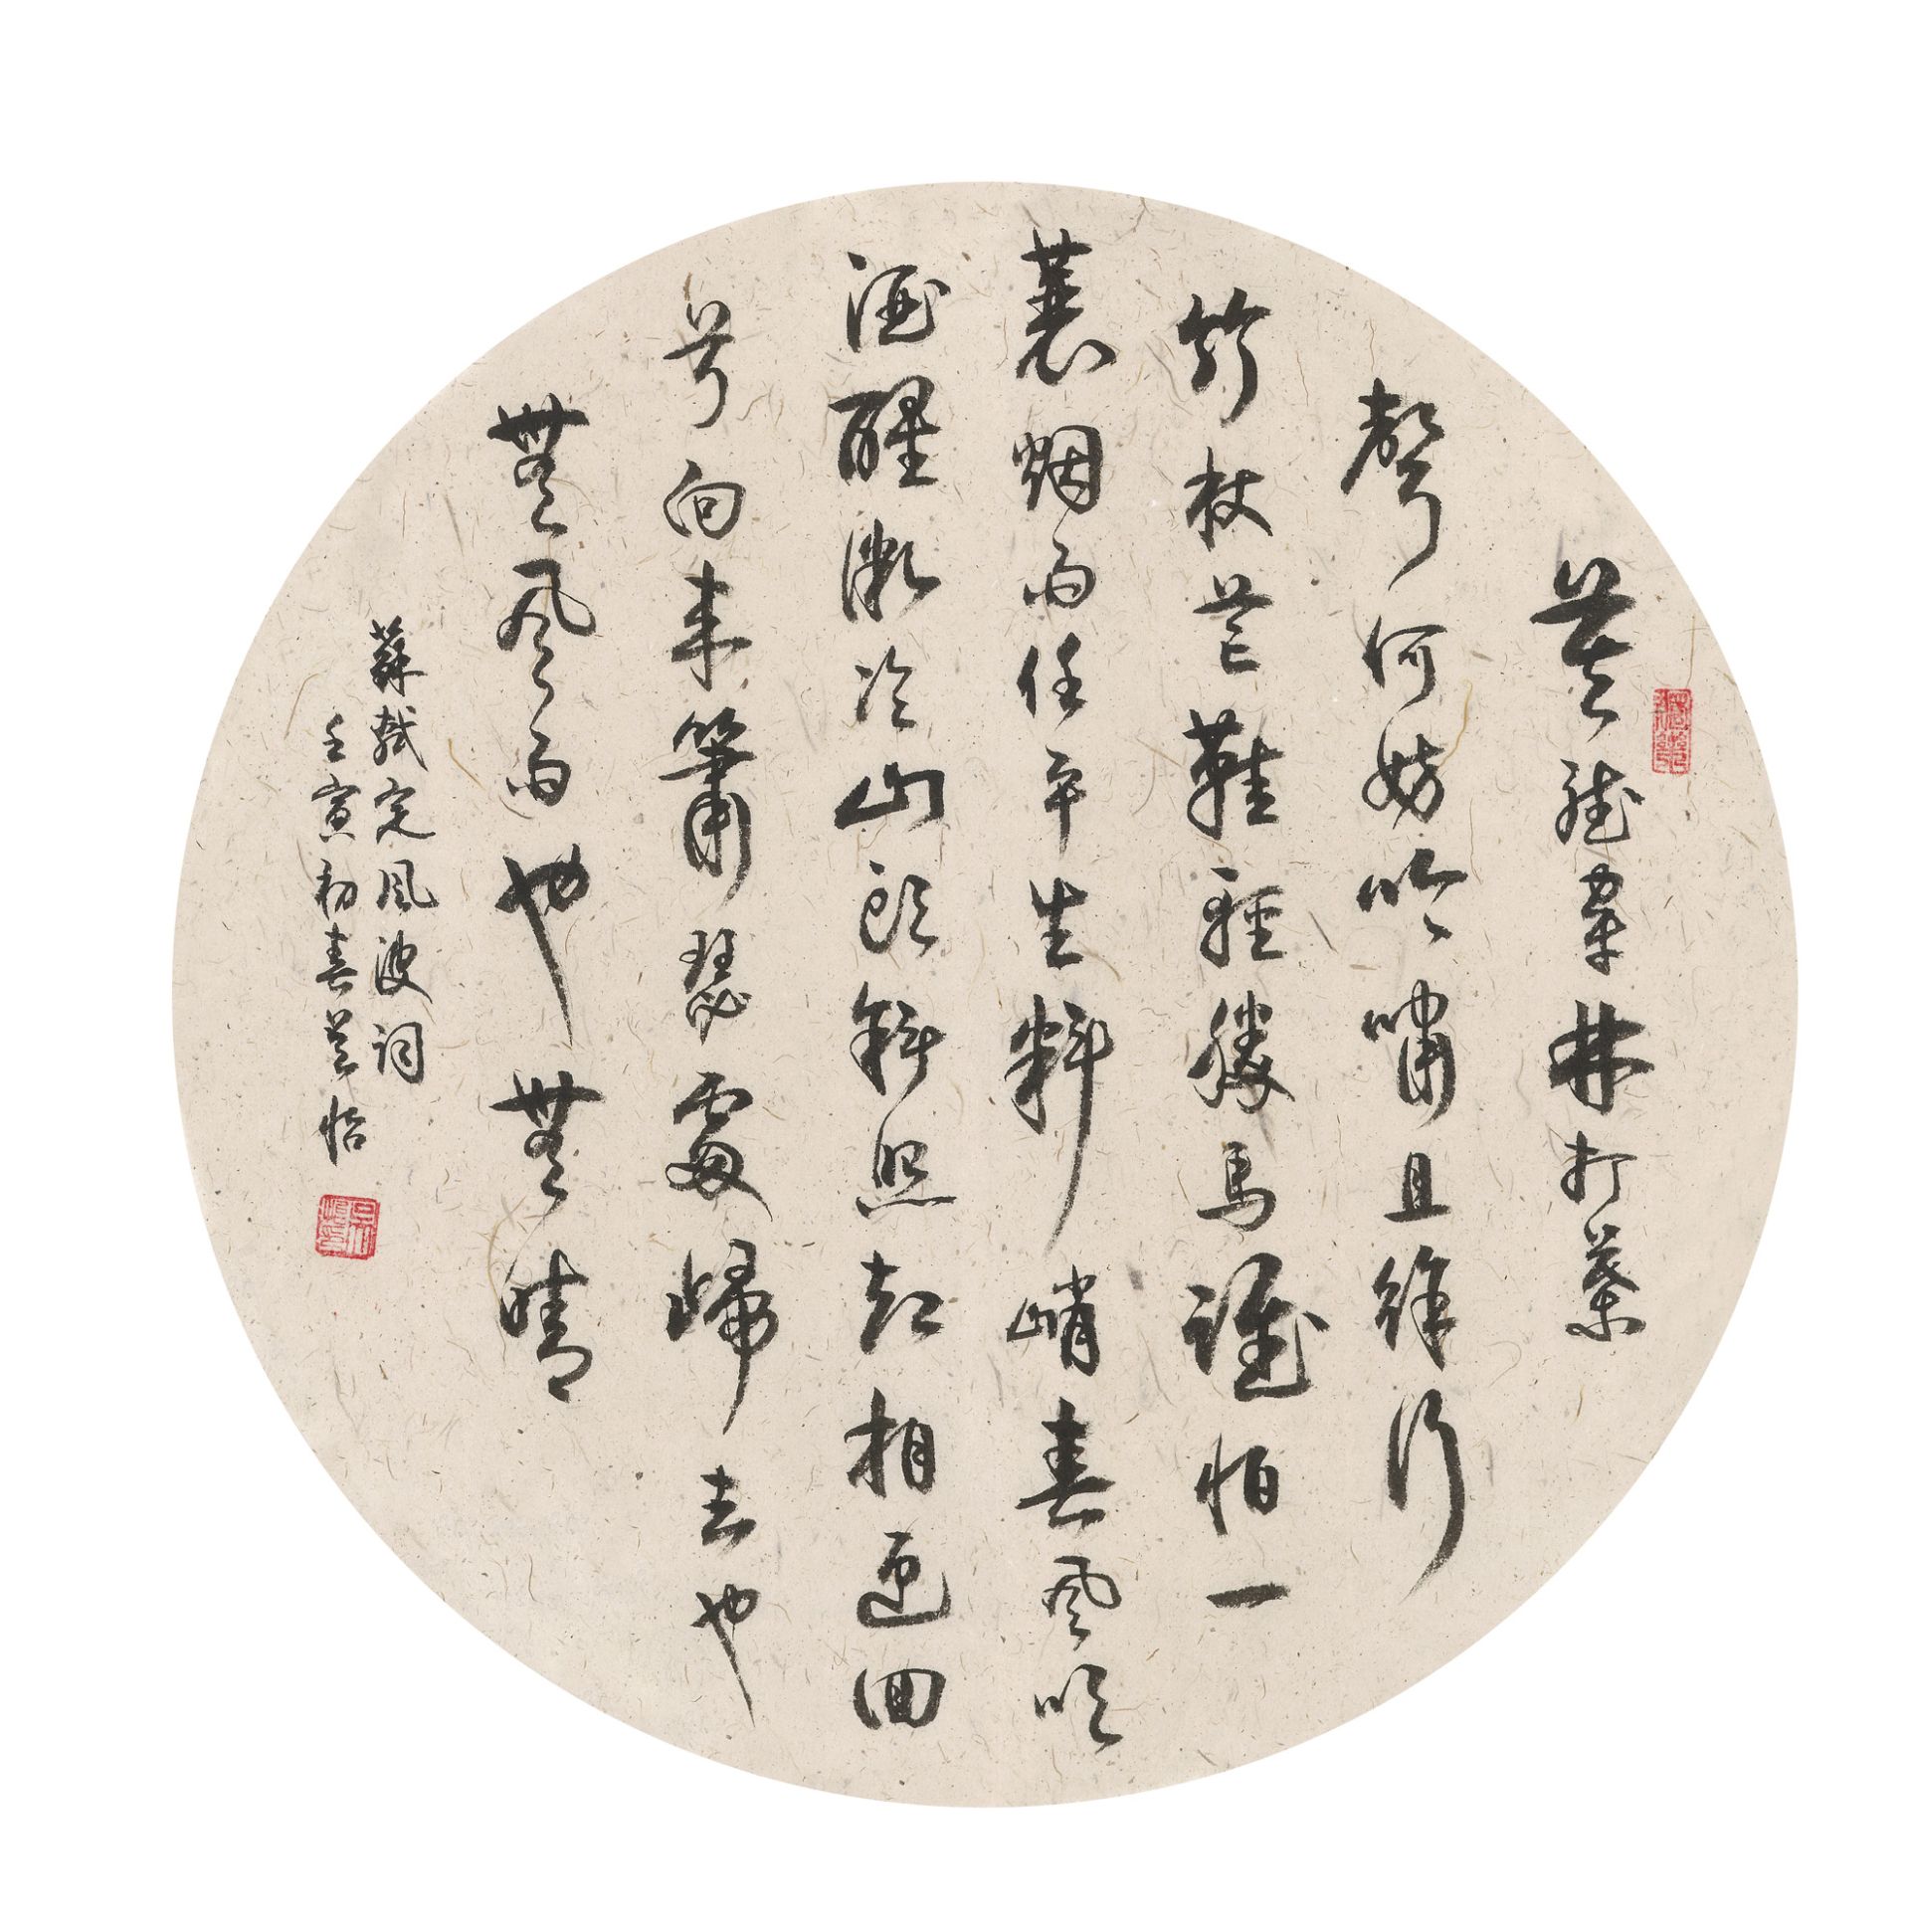 莫聽穿林打葉
聲何妨吟嘯且徐行
竹杖芒鞋輕勝馬誰怕一
蓑烟雨任平生料峭春風吹
酒醒微冷山頭斜照却相迎回
首向来簫瑟處歸去也
無風雨也無晴
蘇軾定風波詞
壬寅初春